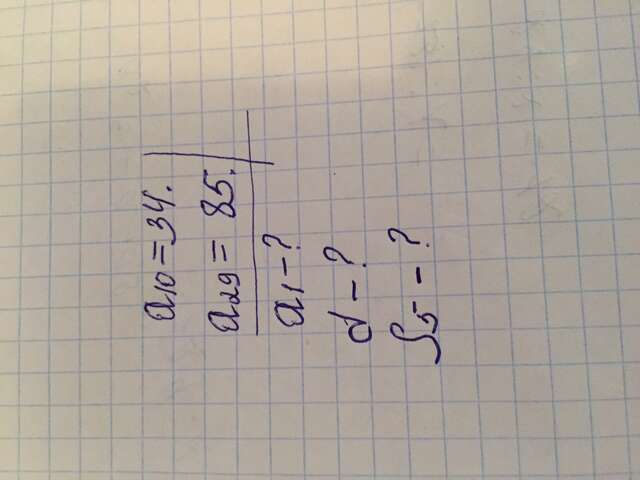 a10=34.
a29=85.
a1-?
d-?
S5-?